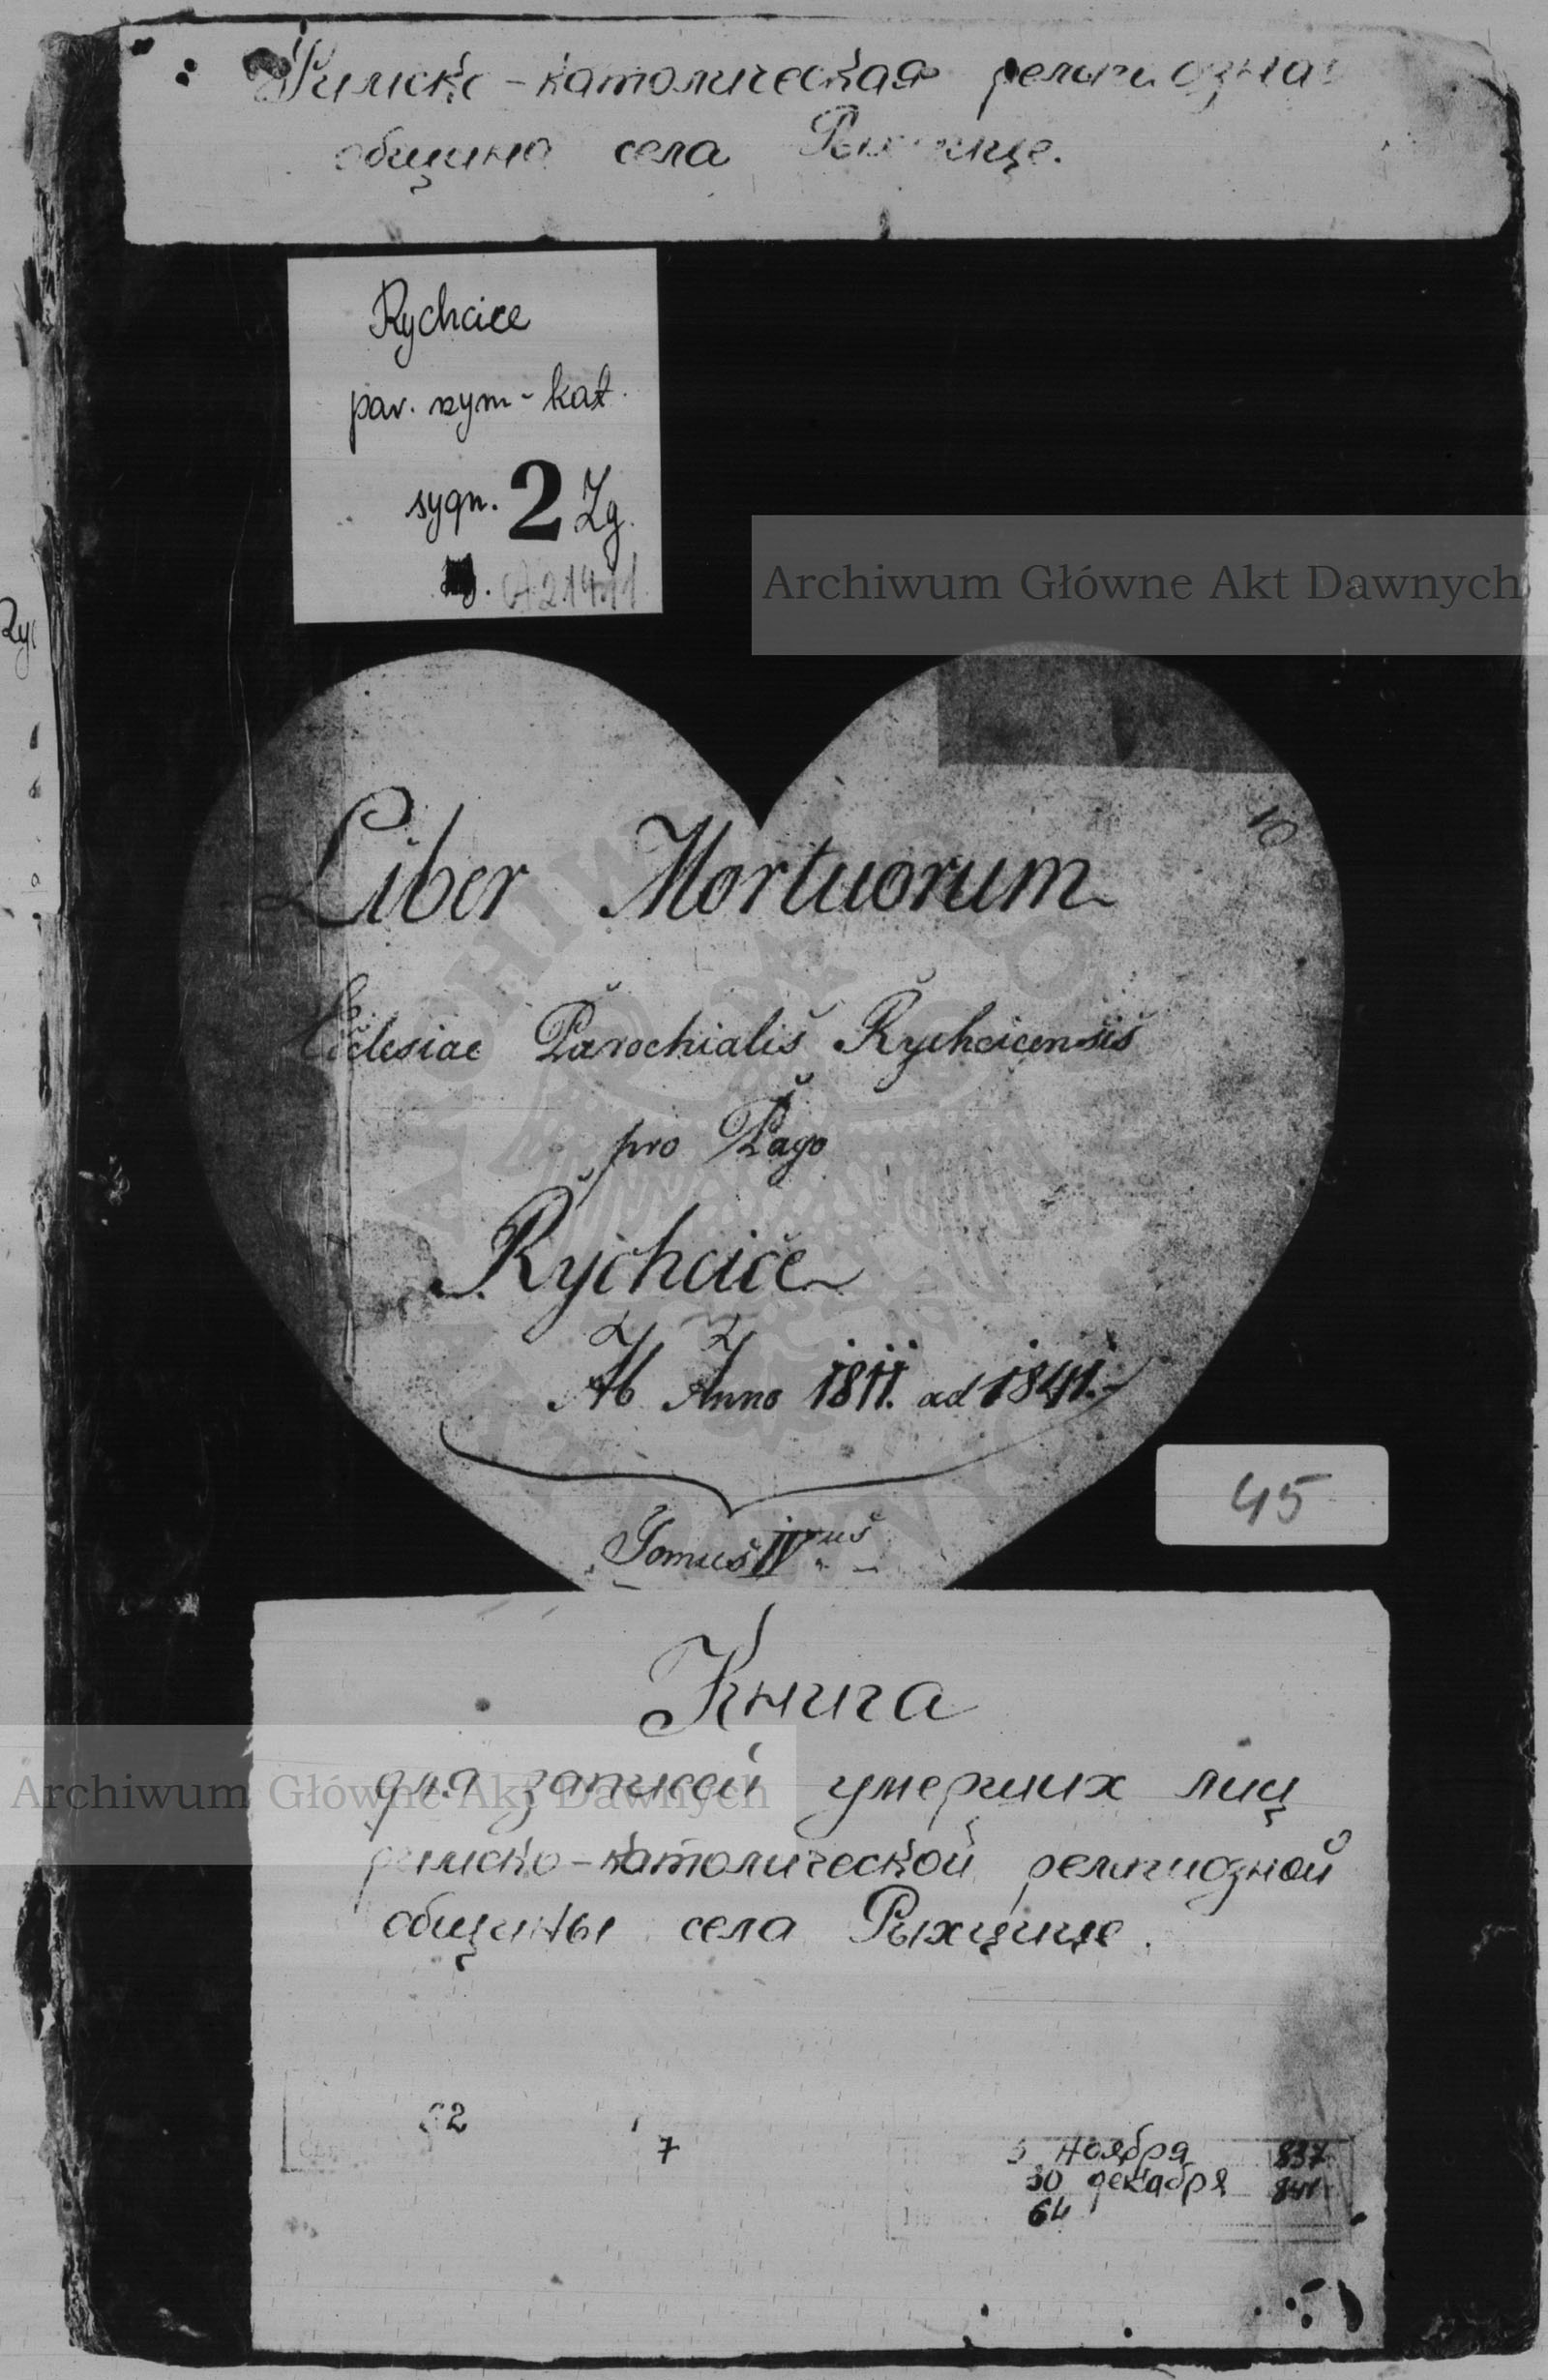 Римско-католическая религиозная
община села Рыхцице.
Rychcice
par. rzym-kat.
sygn. 2 Zg.
Archiwum Główne Akt Dawnych
10
Liber Mortuorum
Ecclesiae Parochialis Rychcicensis
pro Pago
Rychcice
Ab Anno 1811. ad 1841.
45
Tomus IVus
Книга
для записей умерших лиц
Archiwum Główne Akt Dawnych
римско-католической религиозной
общины села Рыхцице.
7
ноября 837
30 декабря 841
64